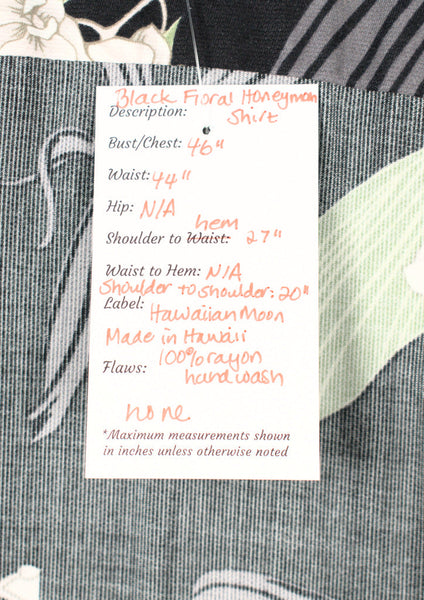 Black Floral Honeyman
Description: Shirt
Bust/Chest: 46"
Waist: 44"
Hip: N/A
hem
Shoulder to Waist: 27"
Waist to Hem: N/A
Shoulder to Shoulder: 20"
Label: Hawaiian Moon
Made in Hawaii
Flaws: 100% rayon
handwash
none
*Maximum measurements shown
in inches unless otherwise noted